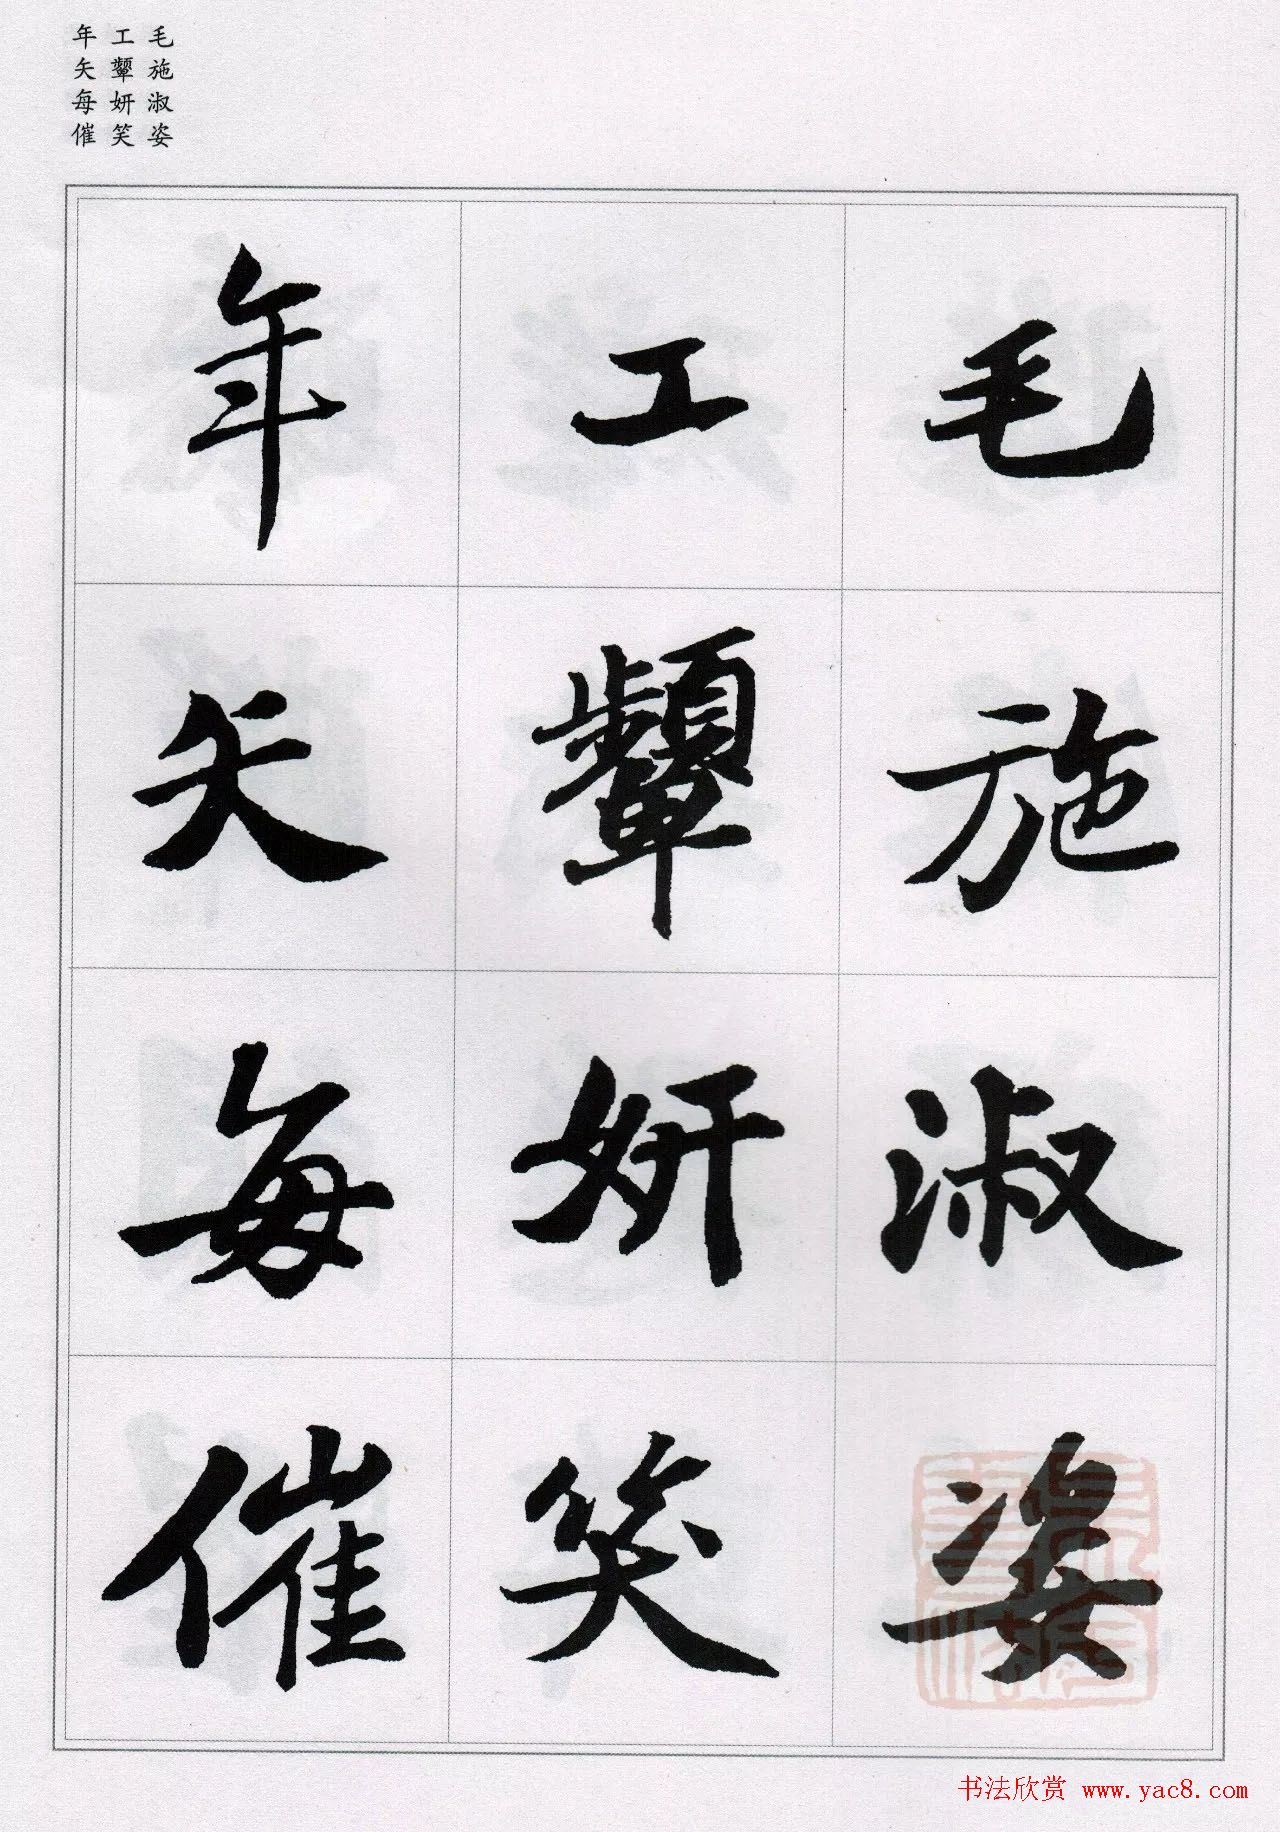 毛施淑姿
工颦妍笑
年矢每催
毛施淑姿
工颦妍笑
年矢每催
书法欣赏 www.yac8.com